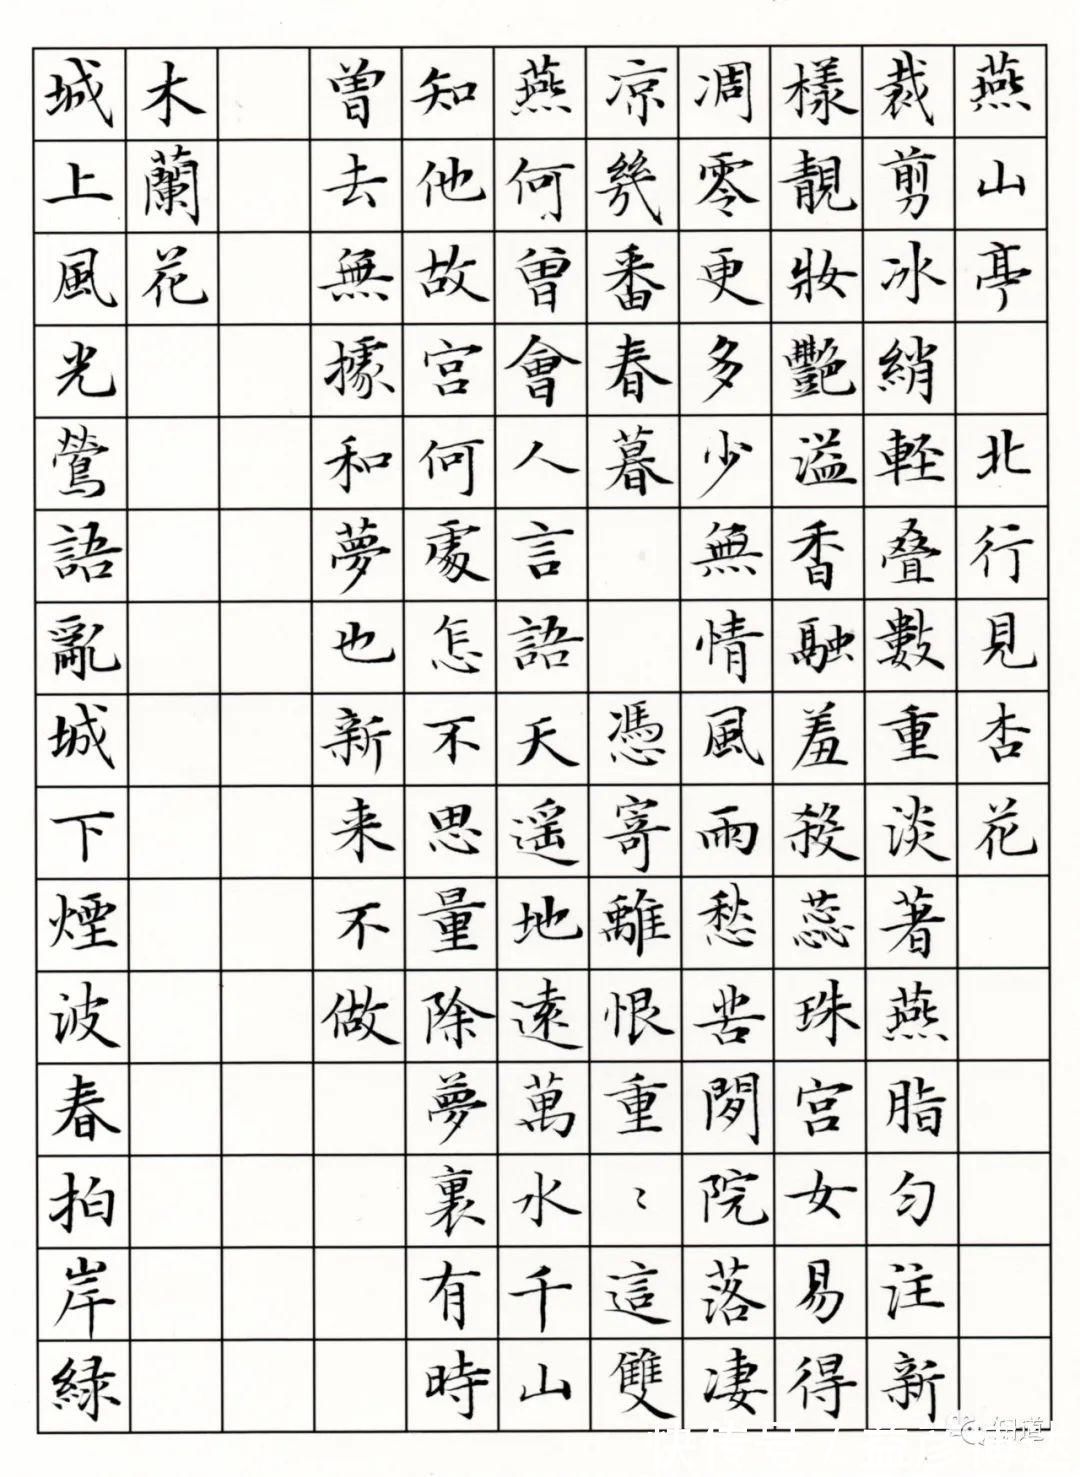 燕山亭 北行見杏花
裁剪冰綃軽叠數重淡著燕脂匀注新
樣靚妝艷溢香融羞殺蕊珠宮女易得
凋零更多少無情風雨愁苦閒院落淒
凉幾番春暮 憑寄離恨重〻這雙
燕何曾會人言語天遥地遠萬水千山
知他故宮何處怎不思量除夢裏有時
曾去無據和夢也新来不做
木蘭花
城上風光鶯語亂城下煙波春拍岸緑